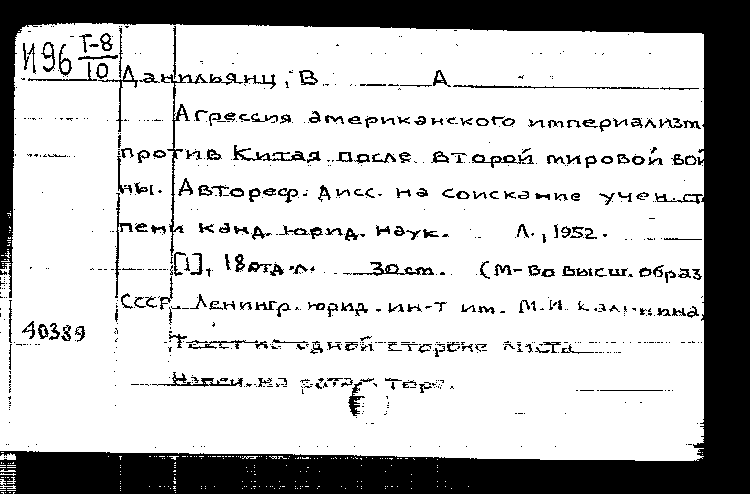 И96 Т-8/10
Данильянц, В А
Агрессия американского империализм
против Китая после второй мировой вой
ны. Автореф. дисс. на соискание учен. ст
пени канд. юрид. наук. Л., 1952.
[1], 18 отд. л. 30 см. (М-во высш. образ
СССР. Ленингр. юрид. ин-т им. М.И. Калинина)
40389
Текст на одной стороне листа
Напеч. на ротаторе.